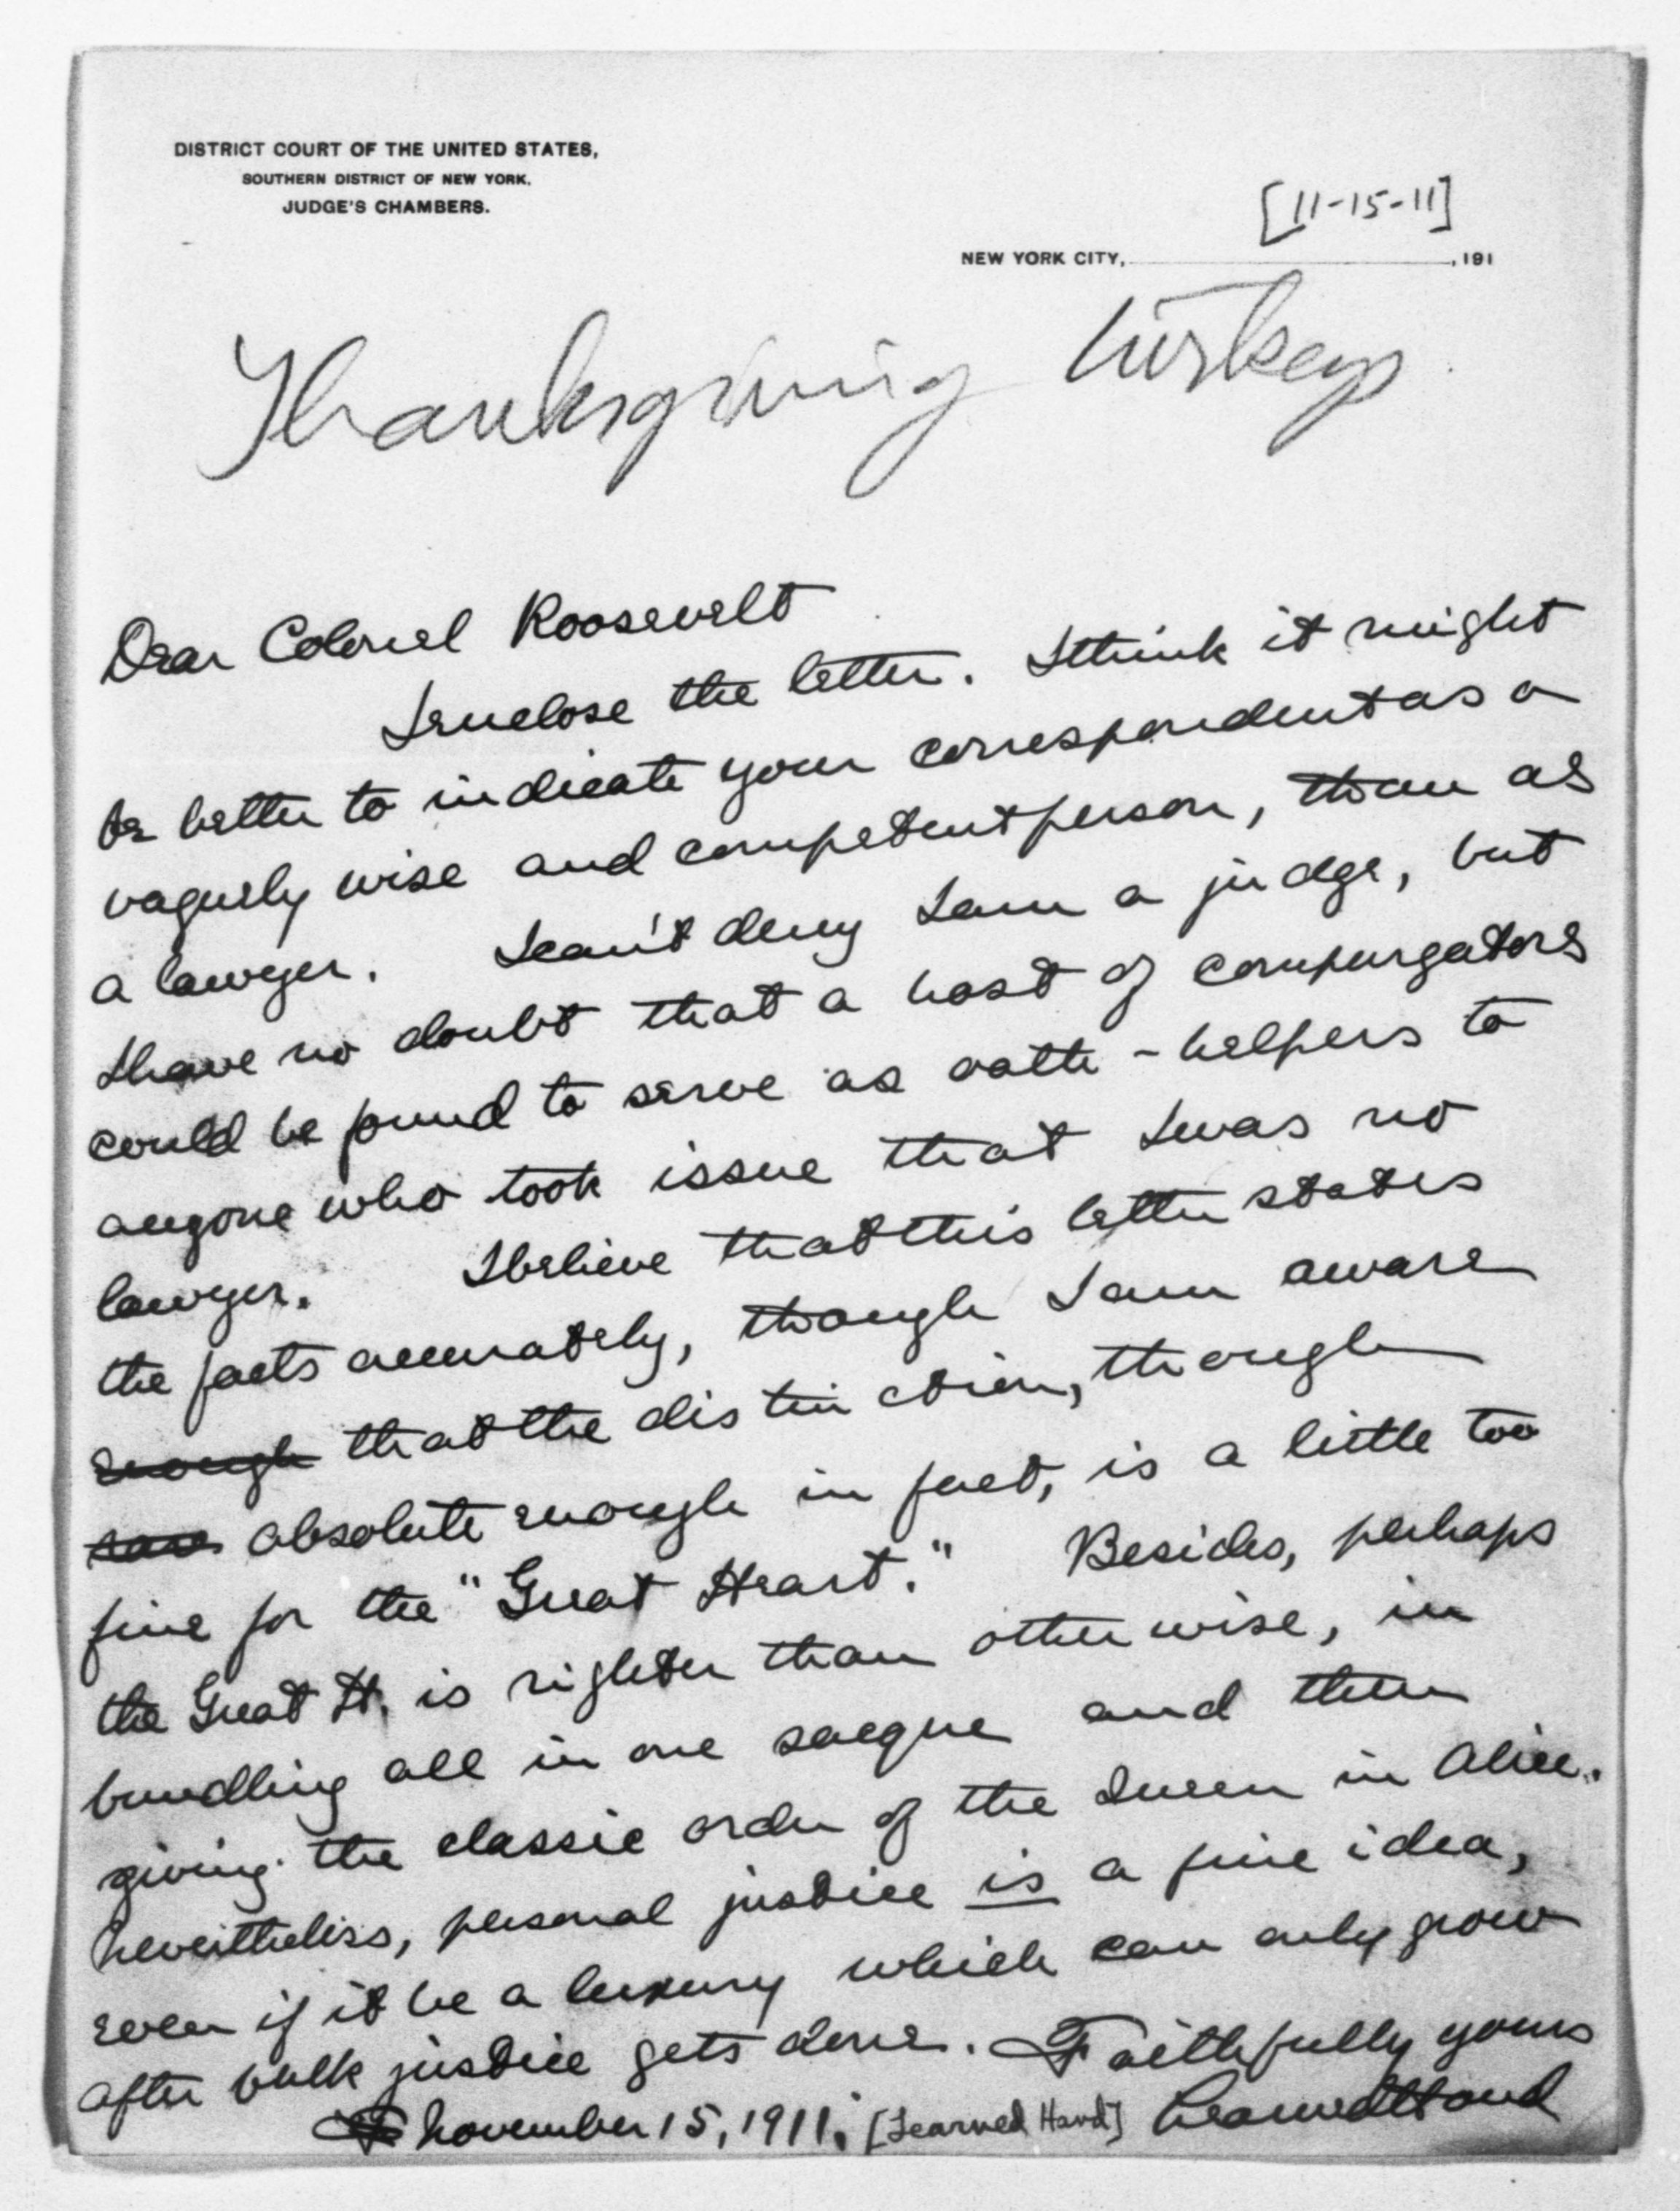 DISTRICT COURT OF THE UNITED STATES,
SOUTHERN DISTRICT OF NEW YORK.
JUDGE'S CHAMBERS.
[11-15-11]
NEW YORK CITY, , 191
Thanksgiving turkeys
Dear Colonel Roosevelt
I enclose the letter. I think it might
be better to indicate your correspondent as a
vaguely wise and competent person, than as
a lawyer. I can't deny I am a judge, but
I have no doubt that a host of compurgators
could be found to serve as oath-helpers to
anyone who took issue that I was no
lawyer. I believe that this letter states
the facts accurately, though I am aware
enough that the distinction, though
absolute enough in fact, is a little too
fine for the "Great Heart." Besides, perhaps
the Great H. is righter than otherwise, in
bundling all in one sacque and then
giving the classic order of the Queen in Alice.
Nevertheless, personal justice is a fine idea,
even if it be a luxury which can only grow
after bulk justice gets done. Faithfully yours
November 15, 1911. [Learned Hand] Learned Hand